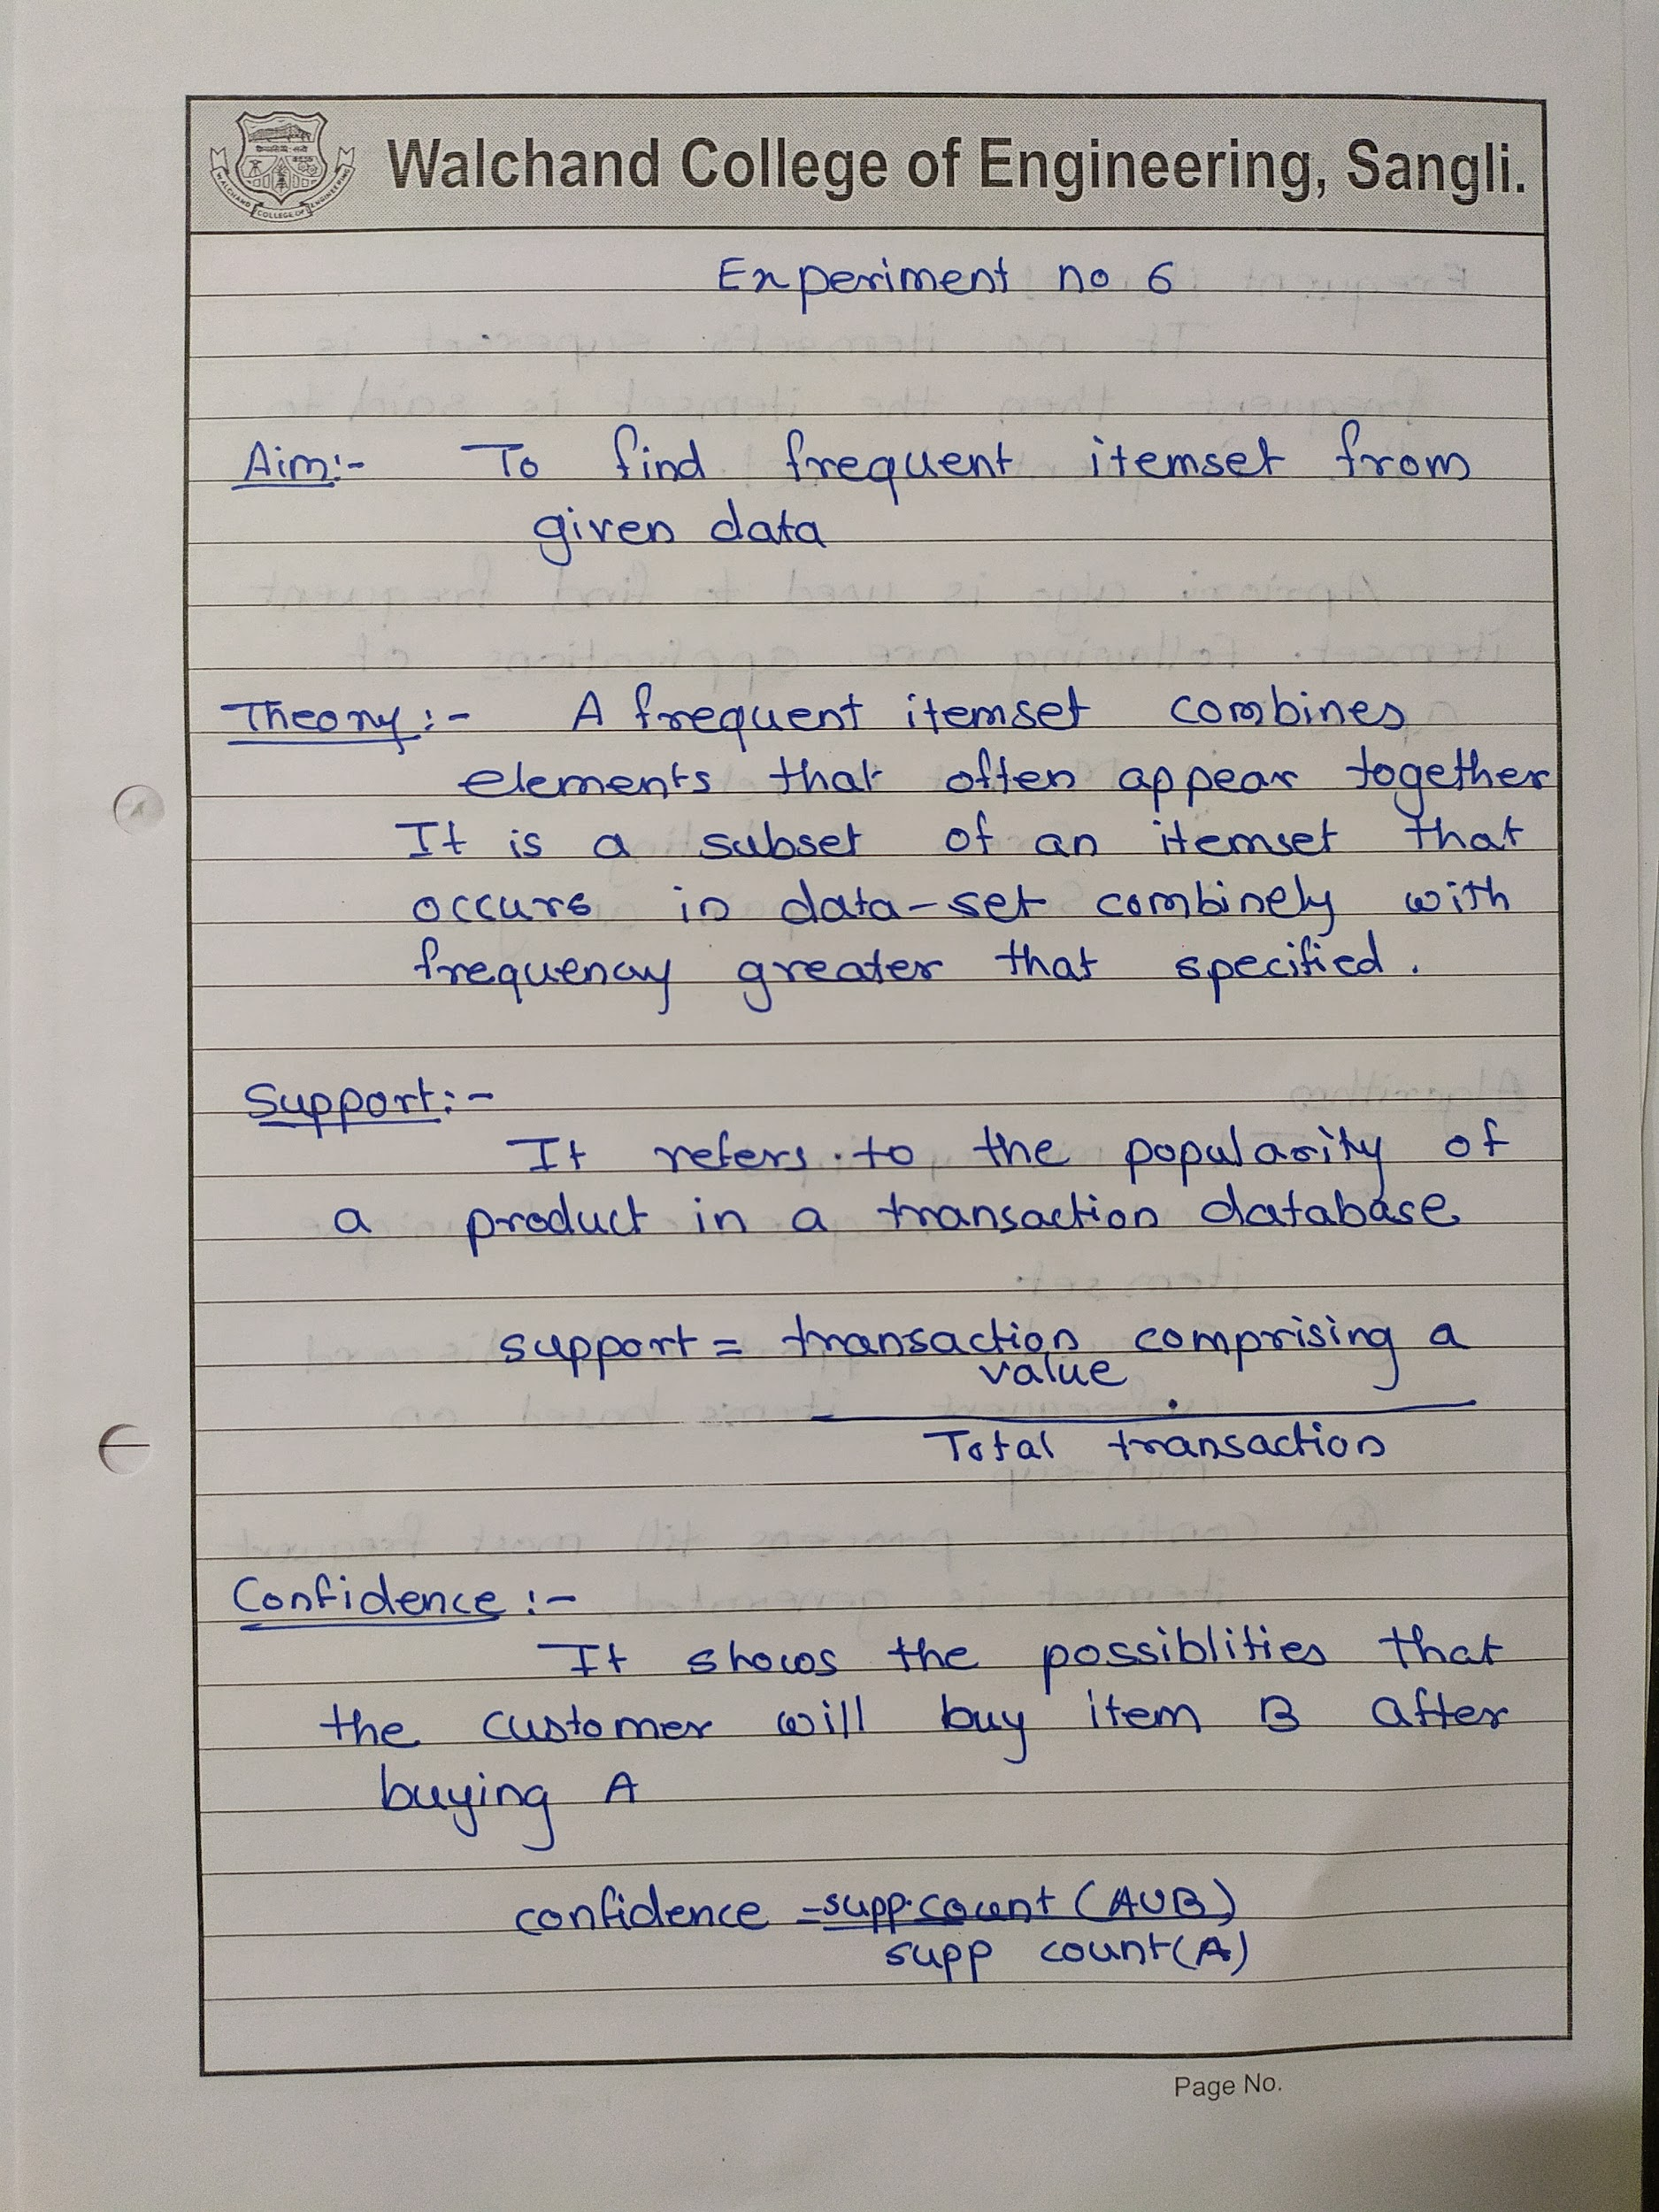 Walchand College of Engineering, Sangli.
WALCHAND COLLEGE OF ENGINEERING
Experiment no 6
Aim:- To find frequent itemset from
given data
Theory:- A frequent itemset combines
elements that often appear together
It is a subset of an itemset that
occurs in data-set combinely with
frequency greater that specified.
Support:-
It refers to the popularity of
a product in a transaction database
support = transaction comprising a
value
Total transaction
Confidence:-
It shows the possiblities that
the customer will buy item B after
buying A
confidence = supp.count (AUB)
supp count(A)
Page No.